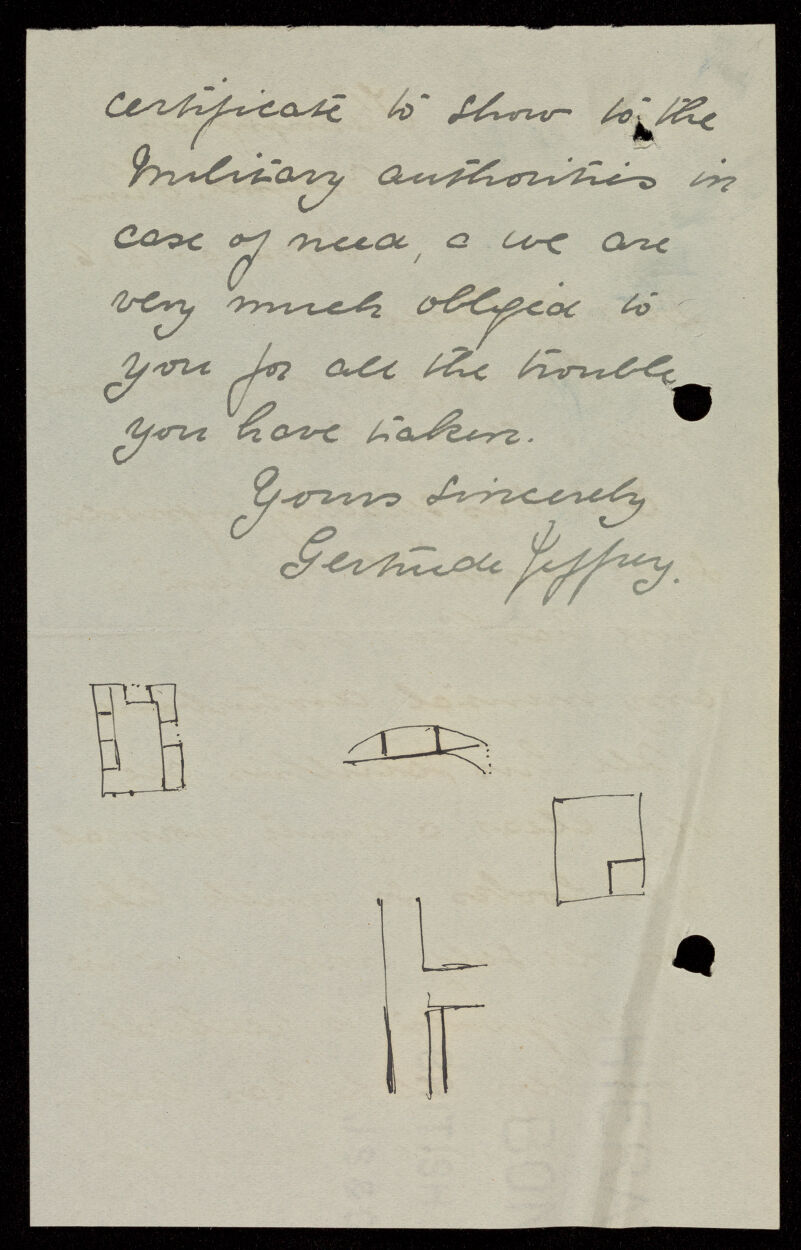 certificate to show to the
Military authorities in
case of need, & we are
very much obliged to
you for all the trouble
you have taken.
Yours sincerely
Gertrude Jeffrey.